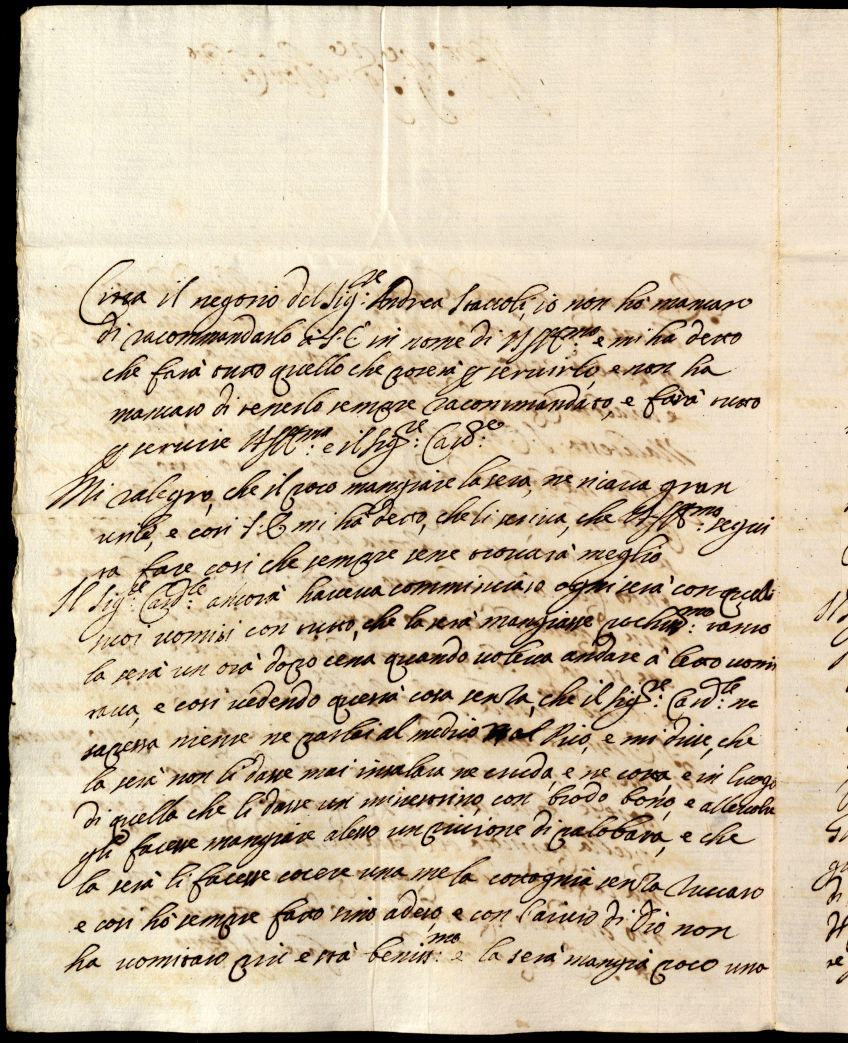 Circa il negotio del Sig.re Andrea Staccoli, io non hò mancato
di racommandarlo à S. E in nome di V.S. Ill.ma e mi hà detto
che farà tutto quello che poterà p servirlo, e non ha
mancato di tenerlo sempre racommandato, e farà tutto
p servire V.S. Ill.ma e il Sig.re Card.le
Mi ralegro, che il poco mangiare la sera, ne ricava gran
utile, e cosi S. E mi hà detto, che li scriva, che V.S. Ill.ma segui
ta fare cosi che sempre sene trovarà meglio
Il Sig.re Card.le ancora haveva comminciato ogni serà con quelli
suoi uomini con tutto, che la serà mangiasse pochiss.mo tanto
la serà un orà dopo cena quando voleva andare à letto vomi
tava, e cosi vedendo questà cosa senza, che il Sig.re Card.le ne
sapessa niente ne parlai al medico Pio, e mi disse, che
la serà non li dasse mai insalata ne cruda, e ne cotta e in luogo
di quella che li dasse un minestrino con brodo bono, e alle volte
gli facesse mangiare alesso un piccione di palobara, e che
la serà li facesse cocere una mela cotognia senza zuccaro
e cosi hò sempre fatto sino adesso, e con l'aiuto di Dio non
ha vomitato più e stà beniss.mo e la serà mangia poco uno